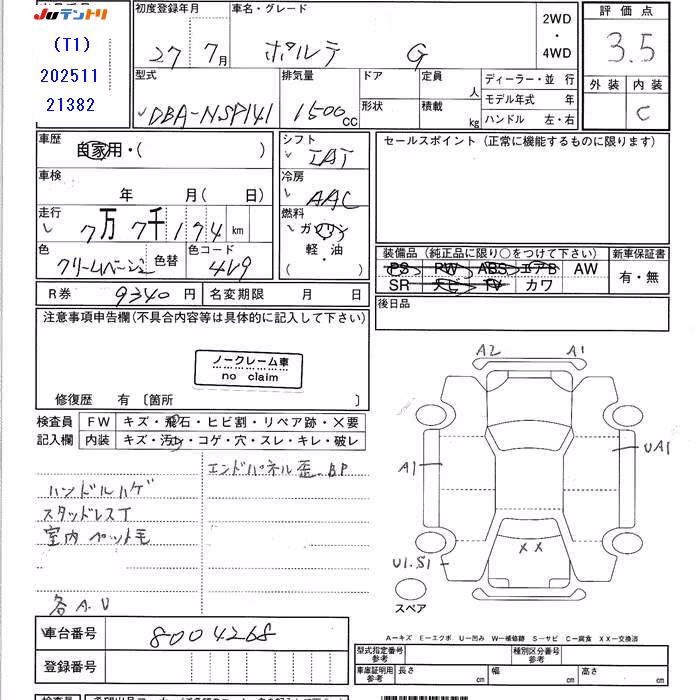 JUテントリ
(T1)
202511
21382
初度登録年月 車名・グレード 2WD ・ 4WD 評価点
27 7月 ポルテ G 3.5
型式 排気量 ドア 定員 人 ディーラー・並行 外装 内装
DBA-NSP141 1500cc 形状 積載 kg モデル年式 年 C
ハンドル 左・右
車歴 自家用・( ) シフト IAT セールスポイント (正常に機能するものに限ります)
車検 年 月(日) 冷房 AAC
走行 7万7千174km 燃料 ガソリン
軽・油
( )
色 クリームベージュ 色替 色コード 4V9
装備品 (純正品に限り○をつけて下さい) 新車保証書
PS PW ABS エアB AW 有・無
SR ナビ TV カワ
R券 9340円 名変期限 月 日 後日品
注意事項申告欄(不具合内容等は具体的に記入して下さい)
ノークレーム車
no claim
修復歴 有 〔箇所 〕
検査員 FW キズ・飛石・ヒビ割・リペア跡・×要
記入欄 内装 キズ・汚レ・コゲ・穴・スレ・キレ・破レ
エンドパネル歪.BP
ハンドルハゲ
スタッドレスT
室内ペット毛
各A.U
A2 A1
A1 UA1
U1.S1 XX
スペア
A−キズ E−エクボ U−凹み W−補修跡 S−サビ C−腐食 XX−交換済
車台番号 8004268
型式指定番号 参考 種別区分番号 参考
登録番号
車庫証明用 参考 長さ cm 幅 cm 高さ cm